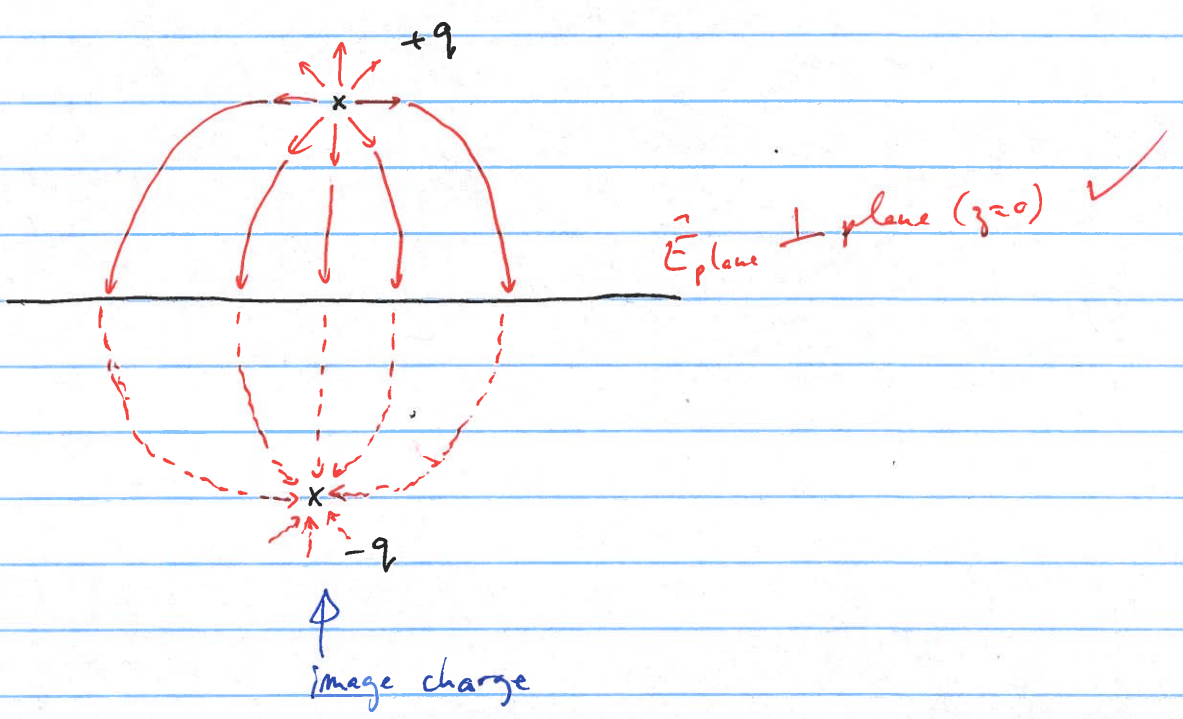 +q
Ê_plane ⊥ plane (z=0) ✓
-q
image charge